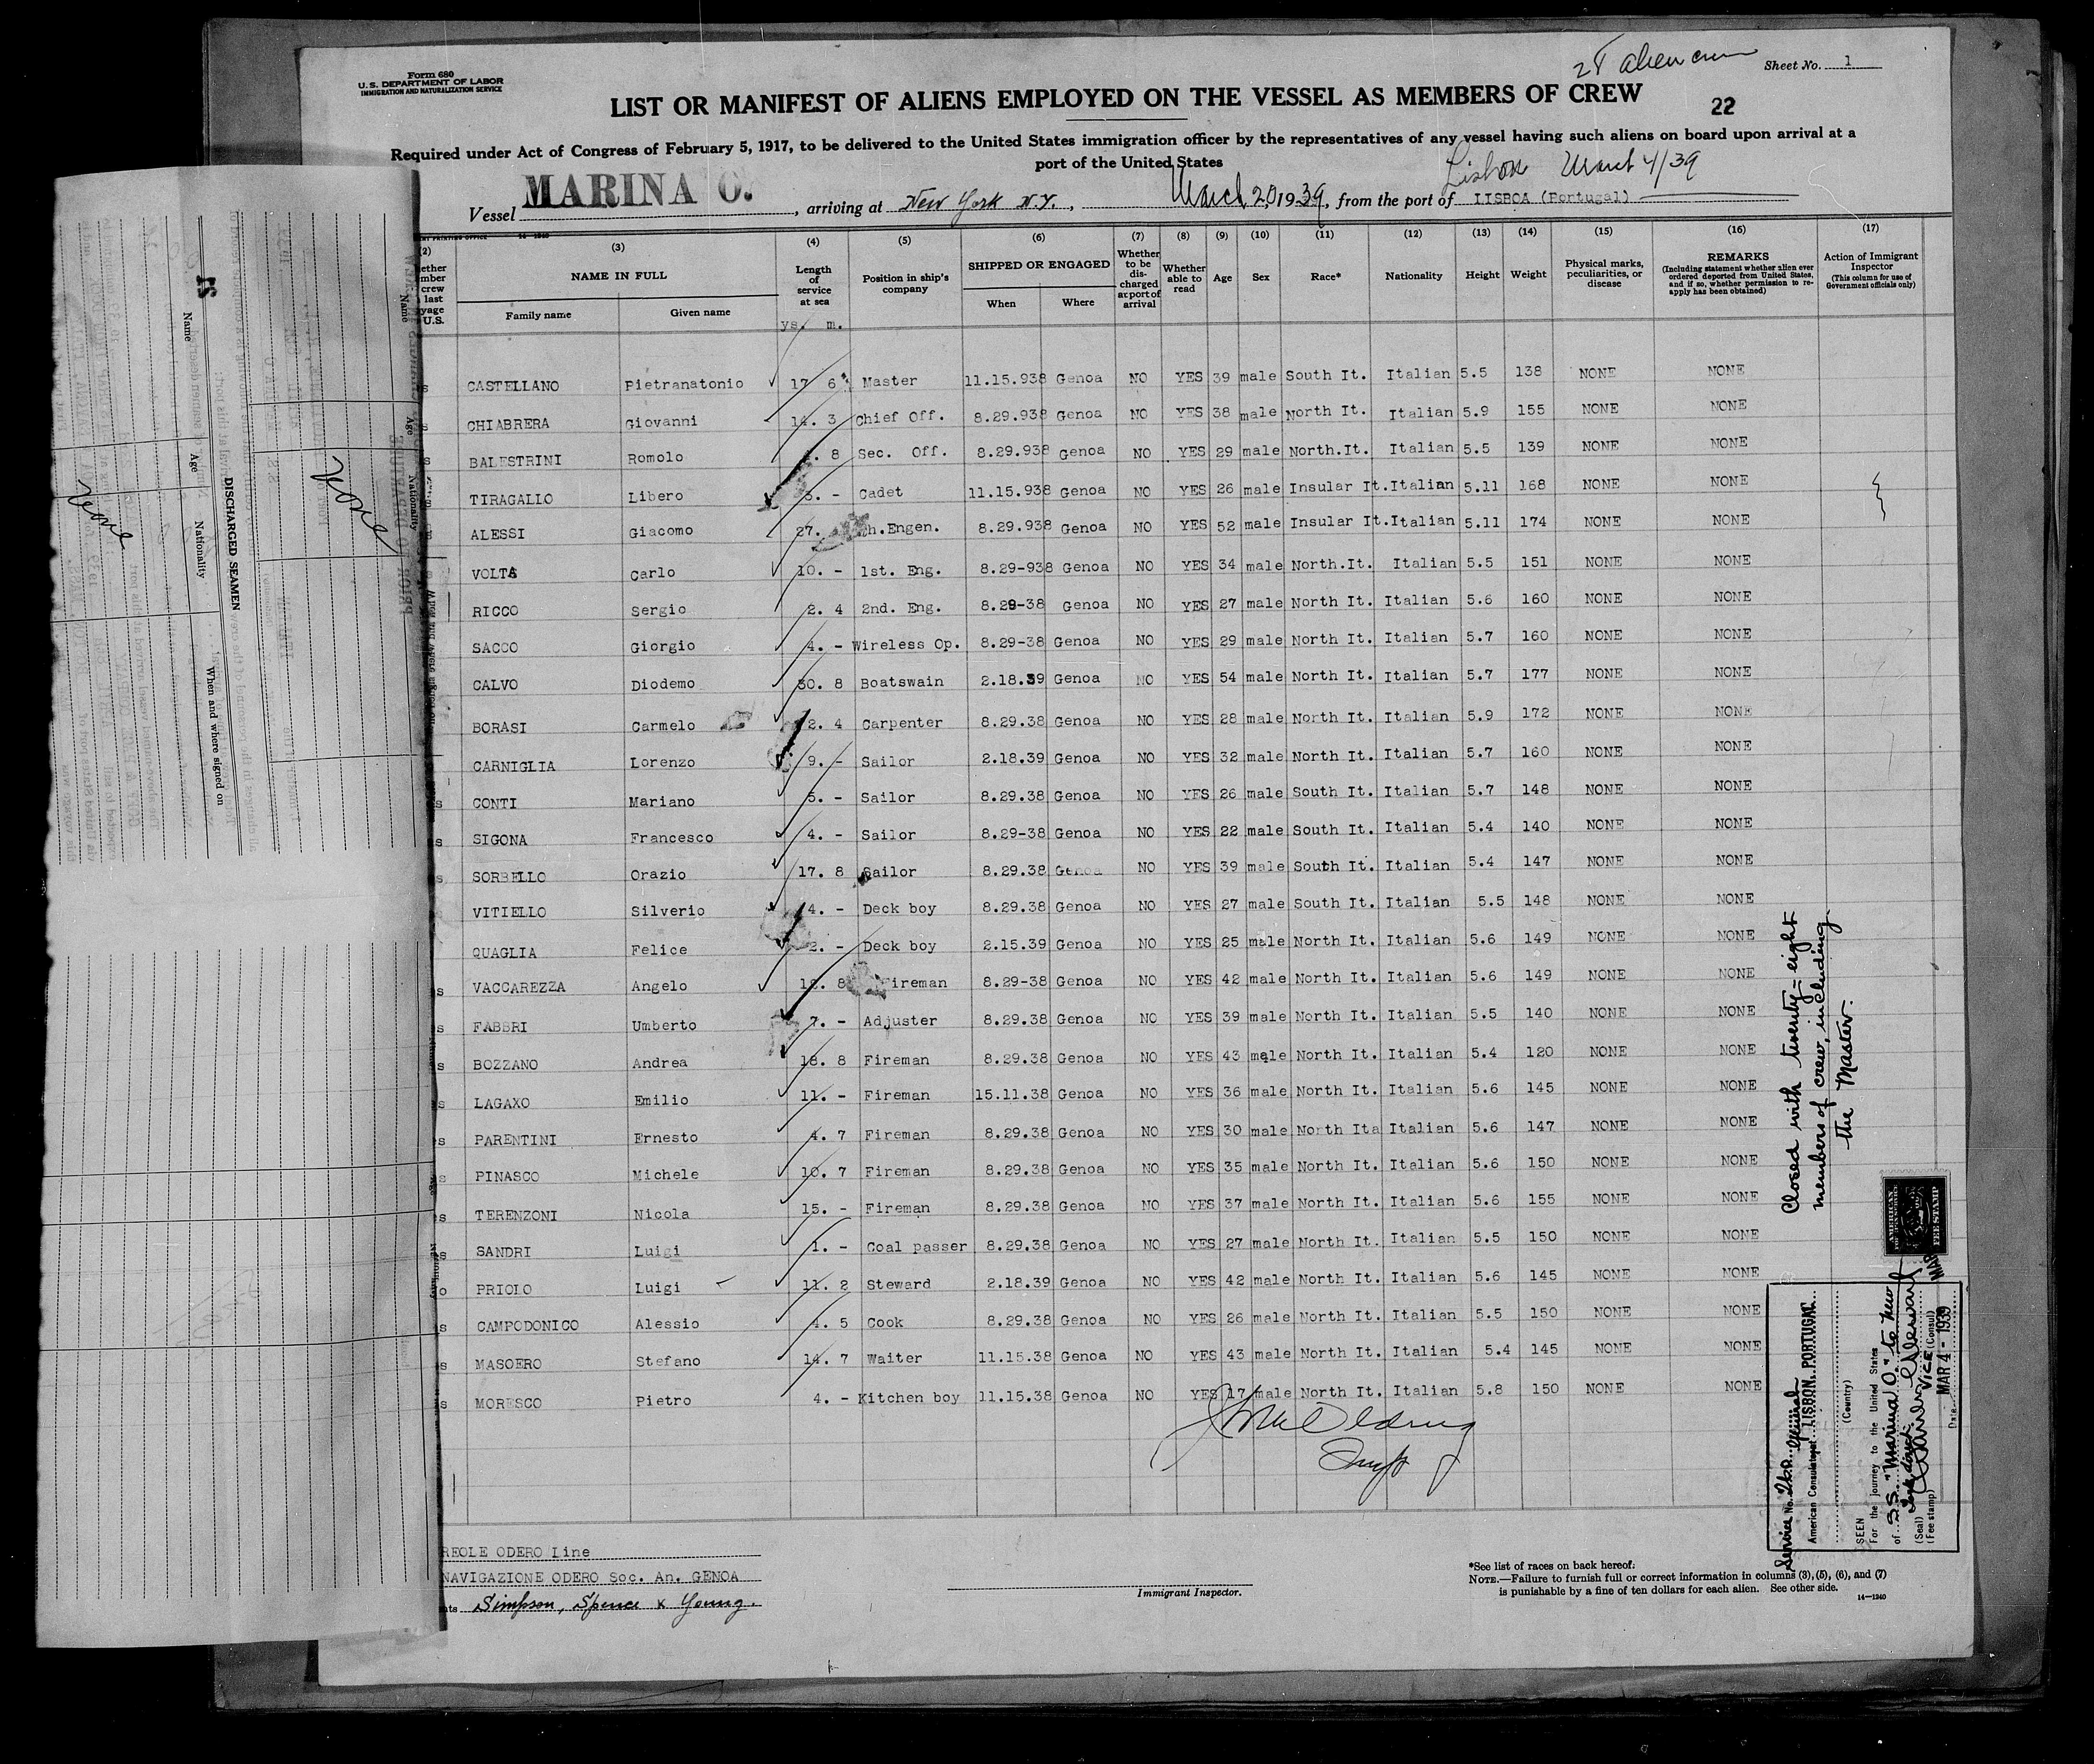 Form 680
U. S. DEPARTMENT OF LABOR
IMMIGRATION AND NATURALIZATION SERVICE
28 alien crew
Sheet No. 1
LIST OR MANIFEST OF ALIENS EMPLOYED ON THE VESSEL AS MEMBERS OF CREW
22
Required under Act of Congress of February 5, 1917, to be delivered to the United States immigration officer by the representatives of any vessel having such aliens on board upon arrival at a
port of the United States
Lisbon March 4/39
Vessel MARINA O. , arriving at New York N.Y. , March 20, 1939, from the port of LISBOA (Portugal)
(2) (3) (4) (5) (6) (7) (8) (9) (10) (11) (12) (13) (14) (15) (16) (17)
NAME IN FULL
Family name Given name
Length of service at sea
ys. m.
Position in ship's company
SHIPPED OR ENGAGED
When Where
Whether to be discharged at port of arrival
Whether able to read
Age Sex Race* Nationality Height Weight
Physical marks, peculiarities, or disease
REMARKS
(Including statement whether alien ever ordered deported from United States, and if so, whether permission to reapply has been obtained)
Action of Immigrant Inspector
(This column for use of Government officials only)
CASTELLANO Pietranatonio 17 6 Master 11.15.938 Genoa NO YES 39 male South It. Italian 5.5 138 NONE NONE
CHIABRERA Giovanni 14. 3 Chief Off. 8.29.938 Genoa NO YES 38 male North It. Italian 5.9 155 NONE NONE
BALESTRINI Romolo 8 Sec. Off. 8.29.938 Genoa NO YES 29 male North.It. Italian 5.5 139 NONE NONE
TIRAGALLO Libero 3. - Cadet 11.15.938 Genoa NO YES 26 male Insular It. Italian 5.11 168 NONE NONE
ALESSI Giacomo 27. h.Engen. 8.29.938 Genoa NO YES 52 male Insular It. Italian 5.11 174 NONE NONE
VOLTA Carlo 10. - 1st. Eng. 8.29-938 Genoa NO YES 34 male North.It. Italian 5.5 151 NONE NONE
RICCO Sergio 2. 4 2nd. Eng. 8.29-38 Genoa NO YES 27 male North It. Italian 5.6 160 NONE NONE
SACCO Giorgio 4. - Wireless Op. 8.29-38 Genoa NO YES 29 male North It. Italian 5.7 160 NONE NONE
CALVO Diodemo 30. 8 Boatswain 2.18.39 Genoa NO YES 54 male North It. Italian 5.7 177 NONE NONE
BORASI Carmelo 2. 4 Carpenter 8.29.38 Genoa NO YES 28 male North It. Italian 5.9 172 NONE NONE
CARNIGLIA Lorenzo 9. - Sailor 2.18.39 Genoa NO YES 32 male North It. Italian 5.7 160 NONE NONE
CONTI Mariano 5. - Sailor 8.29.38 Genoa NO YES 26 male South It. Italian 5.7 148 NONE NONE
SIGONA Francesco 4. - Sailor 8.29-38 Genoa NO YES 22 male South It. Italian 5.4 140 NONE NONE
SORBELLO Orazio 17. 8 Sailor 8.29.38 Genoa NO YES 39 male South It. Italian 5.4 147 NONE NONE
VITIELLO Silverio 4. - Deck boy 8.29.38 Genoa NO YES 27 male South It. Italian 5.5 148 NONE NONE
QUAGLIA Felice 2. - Deck boy 2.15.39 Genoa NO YES 25 male North It. Italian 5.6 149 NONE NONE
VACCAREZZA Angelo 8 Fireman 8.29-38 Genoa NO YES 42 male North It. Italian 5.6 149 NONE NONE
FABBRI Umberto 7. - Adjuster 8.29.38 Genoa NO YES 39 male North It. Italian 5.5 140 NONE NONE
BOZZANO Andrea 18. 8 Fireman 8.29.38 Genoa NO YES 43 male North It. Italian 5.4 120 NONE NONE
LAGAXO Emilio 11. - Fireman 15.11.38 Genoa NO YES 36 male North It. Italian 5.6 145 NONE NONE
PARENTINI Ernesto 4. 7 Fireman 8.29.38 Genoa NO YES 30 male North Ita Italian 5.6 147 NONE NONE
PINASCO Michele 10. 7 Fireman 8.29.38 Genoa NO YES 35 male North It. Italian 5.6 150 NONE NONE
TERENZONI Nicola 15. - Fireman 8.29.38 Genoa NO YES 37 male North It. Italian 5.6 155 NONE NONE
SANDRI Luigi 1. - Coal passer 8.29.38 Genoa NO YES 27 male North It. Italian 5.5 150 NONE NONE
PRIOLO Luigi 11. 2 Steward 2.18.39 Genoa NO YES 42 male North It. Italian 5.6 145 NONE NONE
CAMPODONICO Alessio 4. 5 Cook 8.29.38 Genoa NO YES 26 male North It. Italian 5.5 150 NONE NONE
MASOERO Stefano 14. 7 Waiter 11.15.38 Genoa NO YES 43 male North It. Italian 5.4 145 NONE NONE
MORESCO Pietro 4. - Kitchen boy 11.15.38 Genoa NO YES 17 male North It. Italian 5.8 150 NONE NONE
Closed with twenty-eight
members of crew, including
the Master.
AMERICAN
FEE STAMP
Service No.
American Consulate General LISBON, PORTUGAL
(Country)
SEEN
For the journey to the United States
of S.S. "Marina O." to New
York direct.
(Seal) VICE (Consul)
(Fee stamp) MAR 4 - 1939
Date
REOLE ODERO Line
NAVIGAZIONE ODERO Soc. An. GENOA
Simpson, Spence & Young.
Immigrant Inspector.
*See list of races on back hereof.
NOTE.—Failure to furnish full or correct information in columns (3), (5), (6), and (7)
is punishable by a fine of ten dollars for each alien. See other side.
14—1240
DISCHARGED SEAMEN
Name Age Nationality When and where signed on
None
PRIOR TO DEPARTURE
Name Age Nationality
None